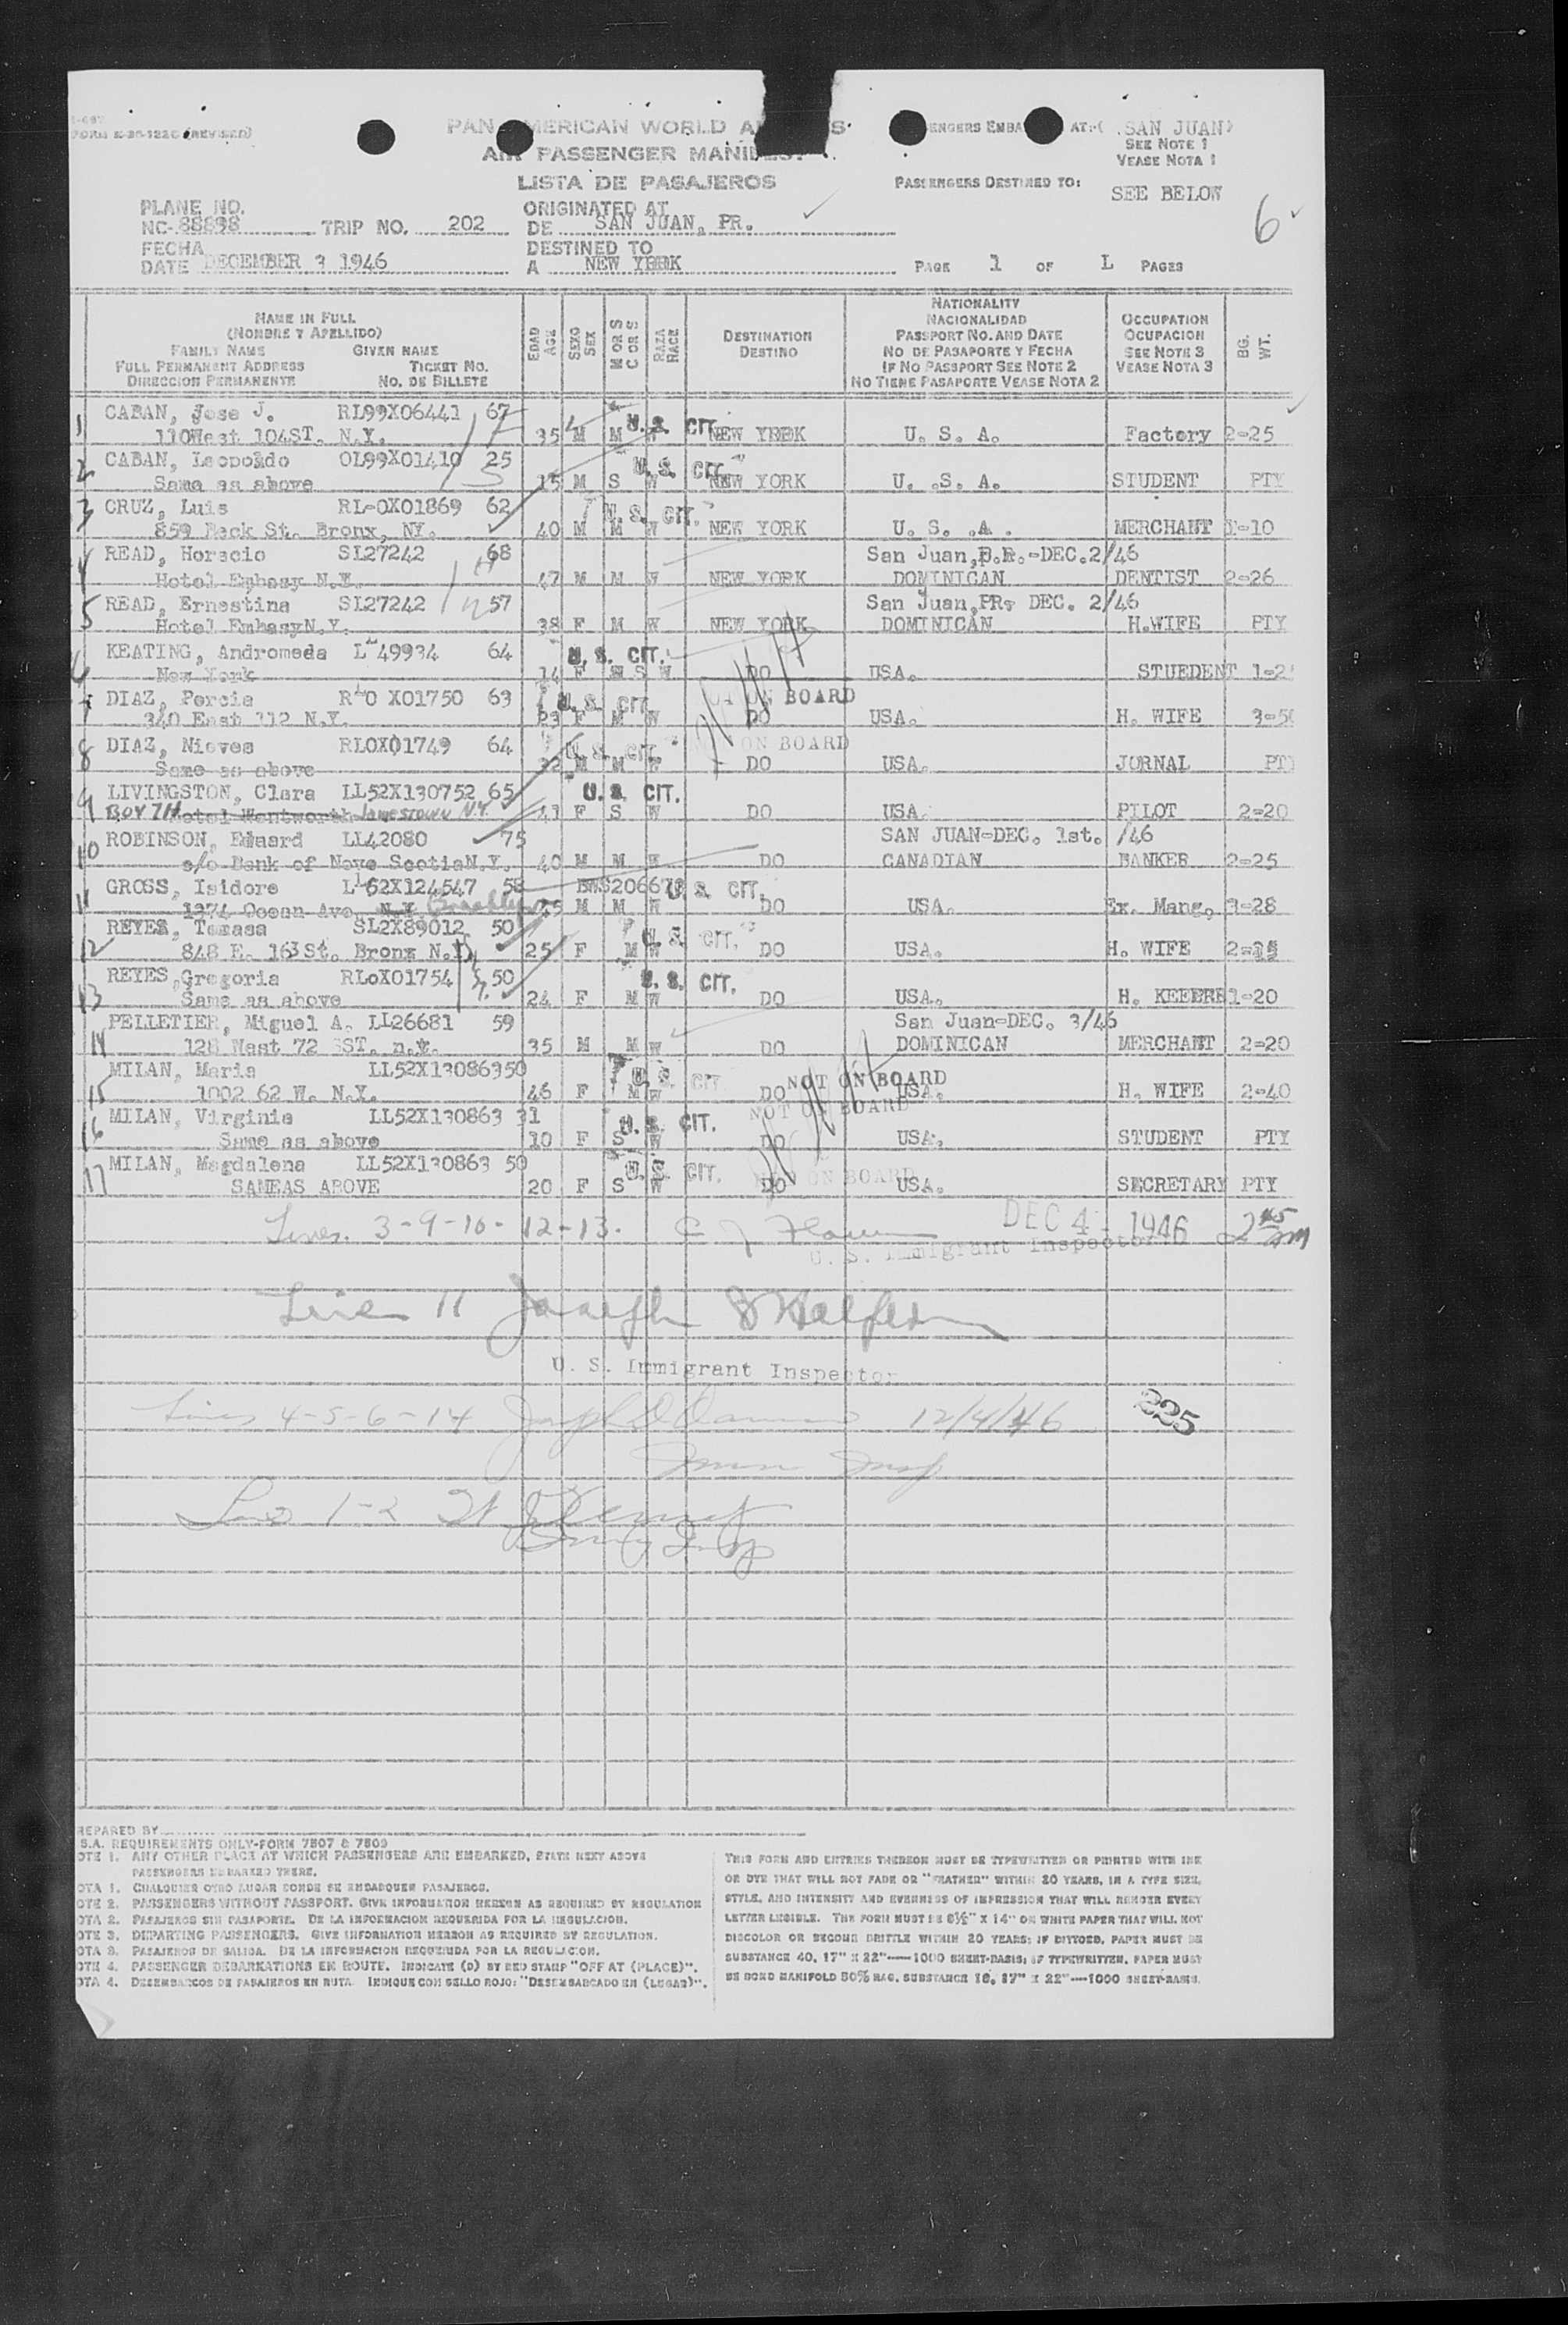 FORM K-30-122C (REVISED)
PAN AMERICAN WORLD A S
AIR PASSENGER MANIFEST
LISTA DE PASAJEROS
ENGERS EMBA AT:-( SAN JUAN)
SEE NOTE 1
VEASE NOTA 1
PASSENGERS DESTINED TO:
SEE BELOW
6
PLANE NO.
NC-88898 TRIP NO. 202
ORIGINATED AT
DE SAN JUAN, PR.
FECHA
DATE DECEMBER 3 1946
DESTINED TO
A NEW YORK
PAGE 1 OF L PAGES
NAME IN FULL
(NOMBRE Y APELLIDO)
FAMILY NAME GIVEN NAME
FULL PERMANENT ADDRESS TICKET NO.
DIRECCION PERMANENTE NO. DE BILLETE
EDAD AGE
SEXO SEX
M OR S C OR S
RAZA RACE
DESTINATION
DESTINO
NATIONALITY
NACIONALIDAD
PASSPORT NO. AND DATE
NO DE PASAPORTE Y FECHA
IF NO PASSPORT SEE NOTE 2
NO TIENE PASAPORTE VEASE NOTA 2
OCCUPATION
OCUPACION
SEE NOTE 3
VEASE NOTA 3
BG. WT.
1 CABAN, Jose J. RL99X06441 67 U. S. CIT.
110West 104ST. N.Y. 35 M M W NEW YORK U. S. A. Factory 2-25
2 CABAN, Leopoldo OL99X01410 25 U. S. CIT.
Same as above 15 M S W NEW YORK U. S. A. STUDENT PTY
3 CRUZ, Luis RL-0X01869 62 U. S. CIT.
859 Beck St. Bronx, NY. 40 M M W NEW YORK U. S. A. MERCHANT 1-10
4 READ, Horacio SL27242 68 San Juan,P.R.-DEC.2/46
Hotel Embasy N.Y. 47 M M W NEW YORK DOMINICAN DENTIST 2-26
5 READ, Ernestina SL27242 57 San Juan,PR- DEC. 2/46
Hotel EmbasyN.Y. 38 F M W NEW YORK DOMINICAN H.WIFE PTY
6 KEATING, Andromeda L 49934 64 U. S. CIT.
New York 14 F S W DO USA. STUEDENT
7 DIAZ, Porcia R O X01750 63 U. S. CIT. NOT ON BOARD
340 East 112 N.Y. 23 F M W DO USA. H. WIFE 3-50
8 DIAZ, Nieves RLOX01749 64 U. S. CIT. NOT ON BOARD
Same as above M M W DO USA. JORNAL PTY
9 LIVINGSTON, Clara LL52X130752 65 U. S. CIT.
Box 714 Hotel Wentworth Jamestown N.Y. 43 F S W DO USA. PILOT 2-20
10 ROBINSON, Eduard LL42080 75 SAN JUAN-DEC. 1st. /46
c/o Bank of Nova ScotiaN.Y. 40 M M W DO CANADIAN BANKER 2-25
11 GROSS, Isidore L 52X124547 58 U. S. CIT.
1374 Ocean Ave. N.Y. Brooklyn M M W DO USA. Ex. Mang, 3-28
12 REYES, Tomasa SL2X89012 50 U. S. CIT.
848 E. 163St. Bronx N.Y. 25 F M W DO USA. H. WIFE
13 REYES,Gregoria RLoX01754 50 U. S. CIT.
Same as above 24 F M W DO USA. H. KEEPER 1-20
14 PELLETIER, Miguel A. LL26681 59 San Juan-DEC. 3/46
128 West 72 SST. n.y. 35 M M W DO DOMINICAN MERCHANT 2-20
15 MILAN, Maria LL52X13086350 U. S. CIT. NOT ON BOARD
1002 62 W. N.Y. 46 F M W DO USA. H. WIFE 2-40
16 MILAN, Virginia LL52X130863 31 U. S. CIT. NOT ON BOARD
Same as above 10 F S W DO USA. STUDENT PTY
17 MILAN, Magdalena LL52X130863 50 U. S. CIT. NOT ON BOARD
SAMEAS ABOVE 20 F S W DO USA. SECRETARY PTY
Lines. 3-9-10-12-13. DEC 4 - 1946 2 45 AM
U. S. Immigrant Inspector
Line 11 Joseph
U. S. Immigrant Inspector
225
Lines 4-5-6-14 12/4/46
Immn Insp
Line 1-2
REPARED BY
S.A. REQUIREMENTS ONLY-FORM 7507 & 7509
OTE 1. ANY OTHER PLACE AT WHICH PASSENGERS ARE EMBARKED, STATE NEXT ABOVE
PASSENGERS EMBARKED THERE.
OTA 1. CUALQUIER OTRO LUGAR DONDE SE EMBARQUEN PASAJEROS.
OTE 2. PASSENGERS WITHOUT PASSPORT. GIVE INFORMATION HEREON AS REQUIRED BY REGULATION
OTA 2. PASAJEROS SIN PASAPORTE. DE LA INFORMACION REQUERIDA POR LA REGULACION.
OTE 3. DEPARTING PASSENGERS. GIVE INFORMATION HEREON AS REQUIRED BY REGULATION.
OTA 3. PASAJEROS DE SALIDA. DE LA INFORMACION REQUERIDA POR LA REGULACION.
OTE 4. PASSENGER DEBARKATIONS EN ROUTE. INDICATE (D) BY RED STAMP "OFF AT (PLACE)".
OTA 4. DESEMBARCOS DE PASAJEROS EN RUTA. INDIQUE CON SELLO ROJO: "DESEMBARCADO EN (LUGAR)".
THIS FORM AND ENTRIES THEREON MUST BE TYPEWRITTEN OR PRINTED WITH INK
OR DYE THAT WILL NOT FADE OR "FEATHER" WITHIN 20 YEARS, IN A TYPE SIZE,
STYLE, AND INTENSITY AND EVENNESS OF IMPRESSION THAT WILL RENDER EVERY
LETTER LEGIBLE. THE FORM MUST BE 8½" X 14" ON WHITE PAPER THAT WILL NOT
DISCOLOR OR BECOME BRITTLE WITHIN 20 YEARS; IF DITTOED, PAPER MUST BE
SUBSTANCE 40, 17" X 22"----1000 SHEET-BASIS; IF TYPEWRITTEN, PAPER MUST
BE BOND MANIFOLD 50% RAG, SUBSTANCE 16, 17" X 22"----1000 SHEET-BASIS.